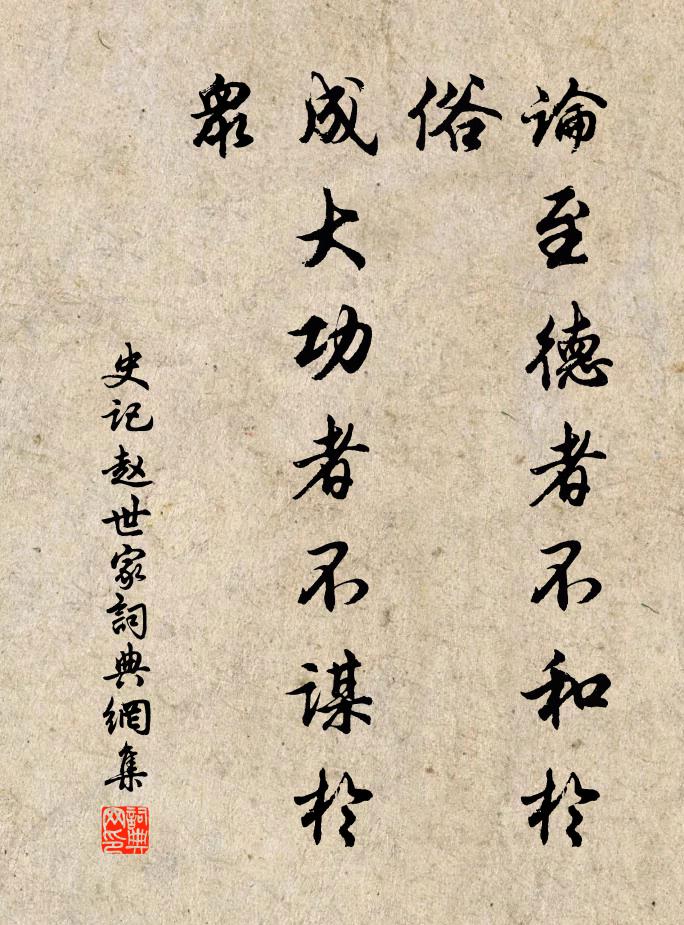 論至德者不和於
俗
成大功者不謀於
眾
史记赵世家詞典網集
詞典
网印